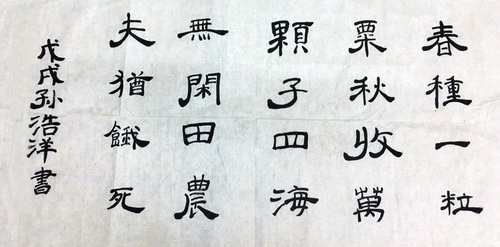 春種一粒
粟秋收萬
顆子四海
無閑田農
夫猶餓死
戊戌孙浩洋書